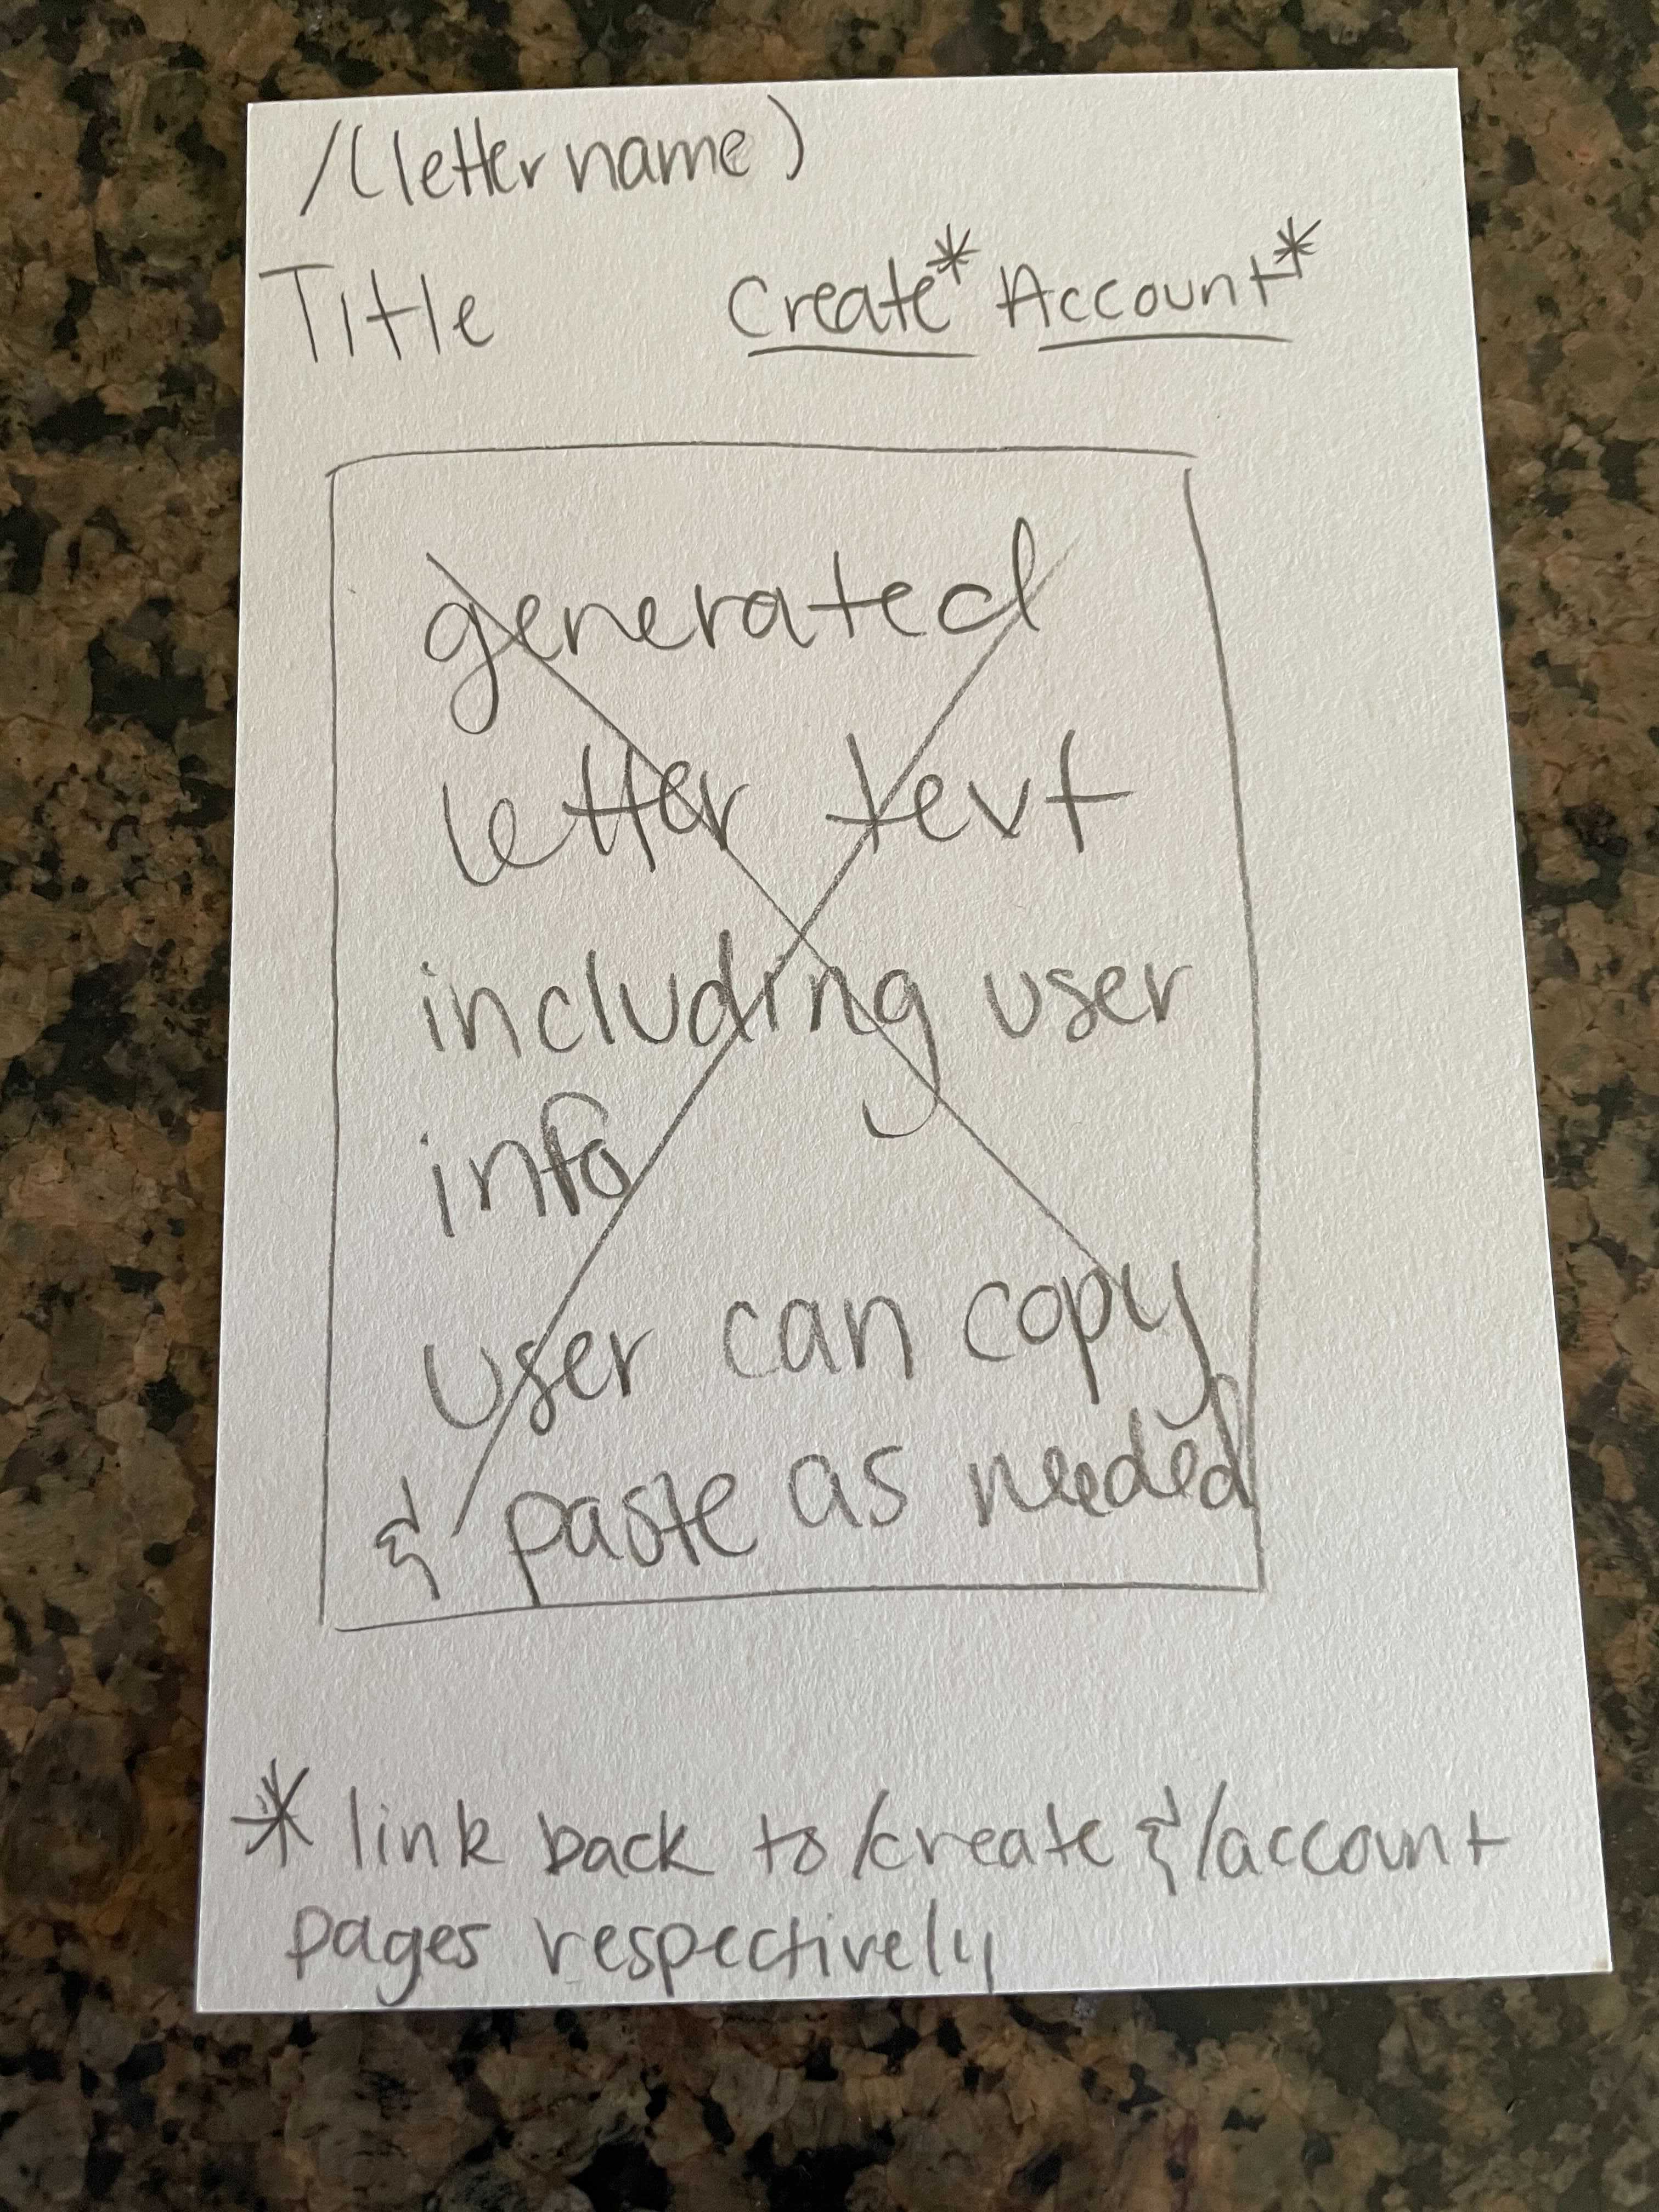 /(letter name)
Title Create* Account*
generated
letter text
including user
info
user can copy
& paste as needed
* link back to /create & /account
pages respectively